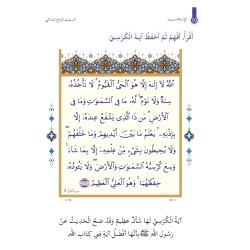 الصف الرابع الابتدائي
أَقْرَأُ، أَفْهَمُ ثُمَّ أَحْفَظُ آيَةَ الْكُرْسِيِّ
اللَّهُ لَا إِلَٰهَ إِلَّا هُوَ الْحَيُّ الْقَيُّومُ ۚ لَا تَأْخُذُهُ
سِنَةٌ وَلَا نَوْمٌ ۚ لَهُ مَا فِي السَّمَاوَاتِ وَمَا فِي
الْأَرْضِ ۗ مَنْ ذَا الَّذِي يَشْفَعُ عِنْدَهُ إِلَّا
بِإِذْنِهِ ۚ يَعْلَمُ مَا بَيْنَ أَيْدِيهِمْ وَمَا خَلْفَهُمْ ۖ
وَلَا يُحِيطُونَ بِشَيْءٍ مِنْ عِلْمِهِ إِلَّا بِمَا شَاءَ ۚ
وَسِعَ كُرْسِيُّهُ السَّمَاوَاتِ وَالْأَرْضَ ۖ وَلَا يَئُودُهُ
حِفْظُهُمَا ۚ وَهُوَ الْعَلِيُّ الْعَظِيمُ
آيَةُ الْكُرْسِيِّ لَهَا شَأْنٌ عَظِيمٌ وَقَدْ صَحَّ الْحَدِيثُ عَنْ
رَسُولِ اللهِ ﷺ بِأَنَّهَا أَفْضَلُ آيَةٍ فِي كِتَابِ اللهِ